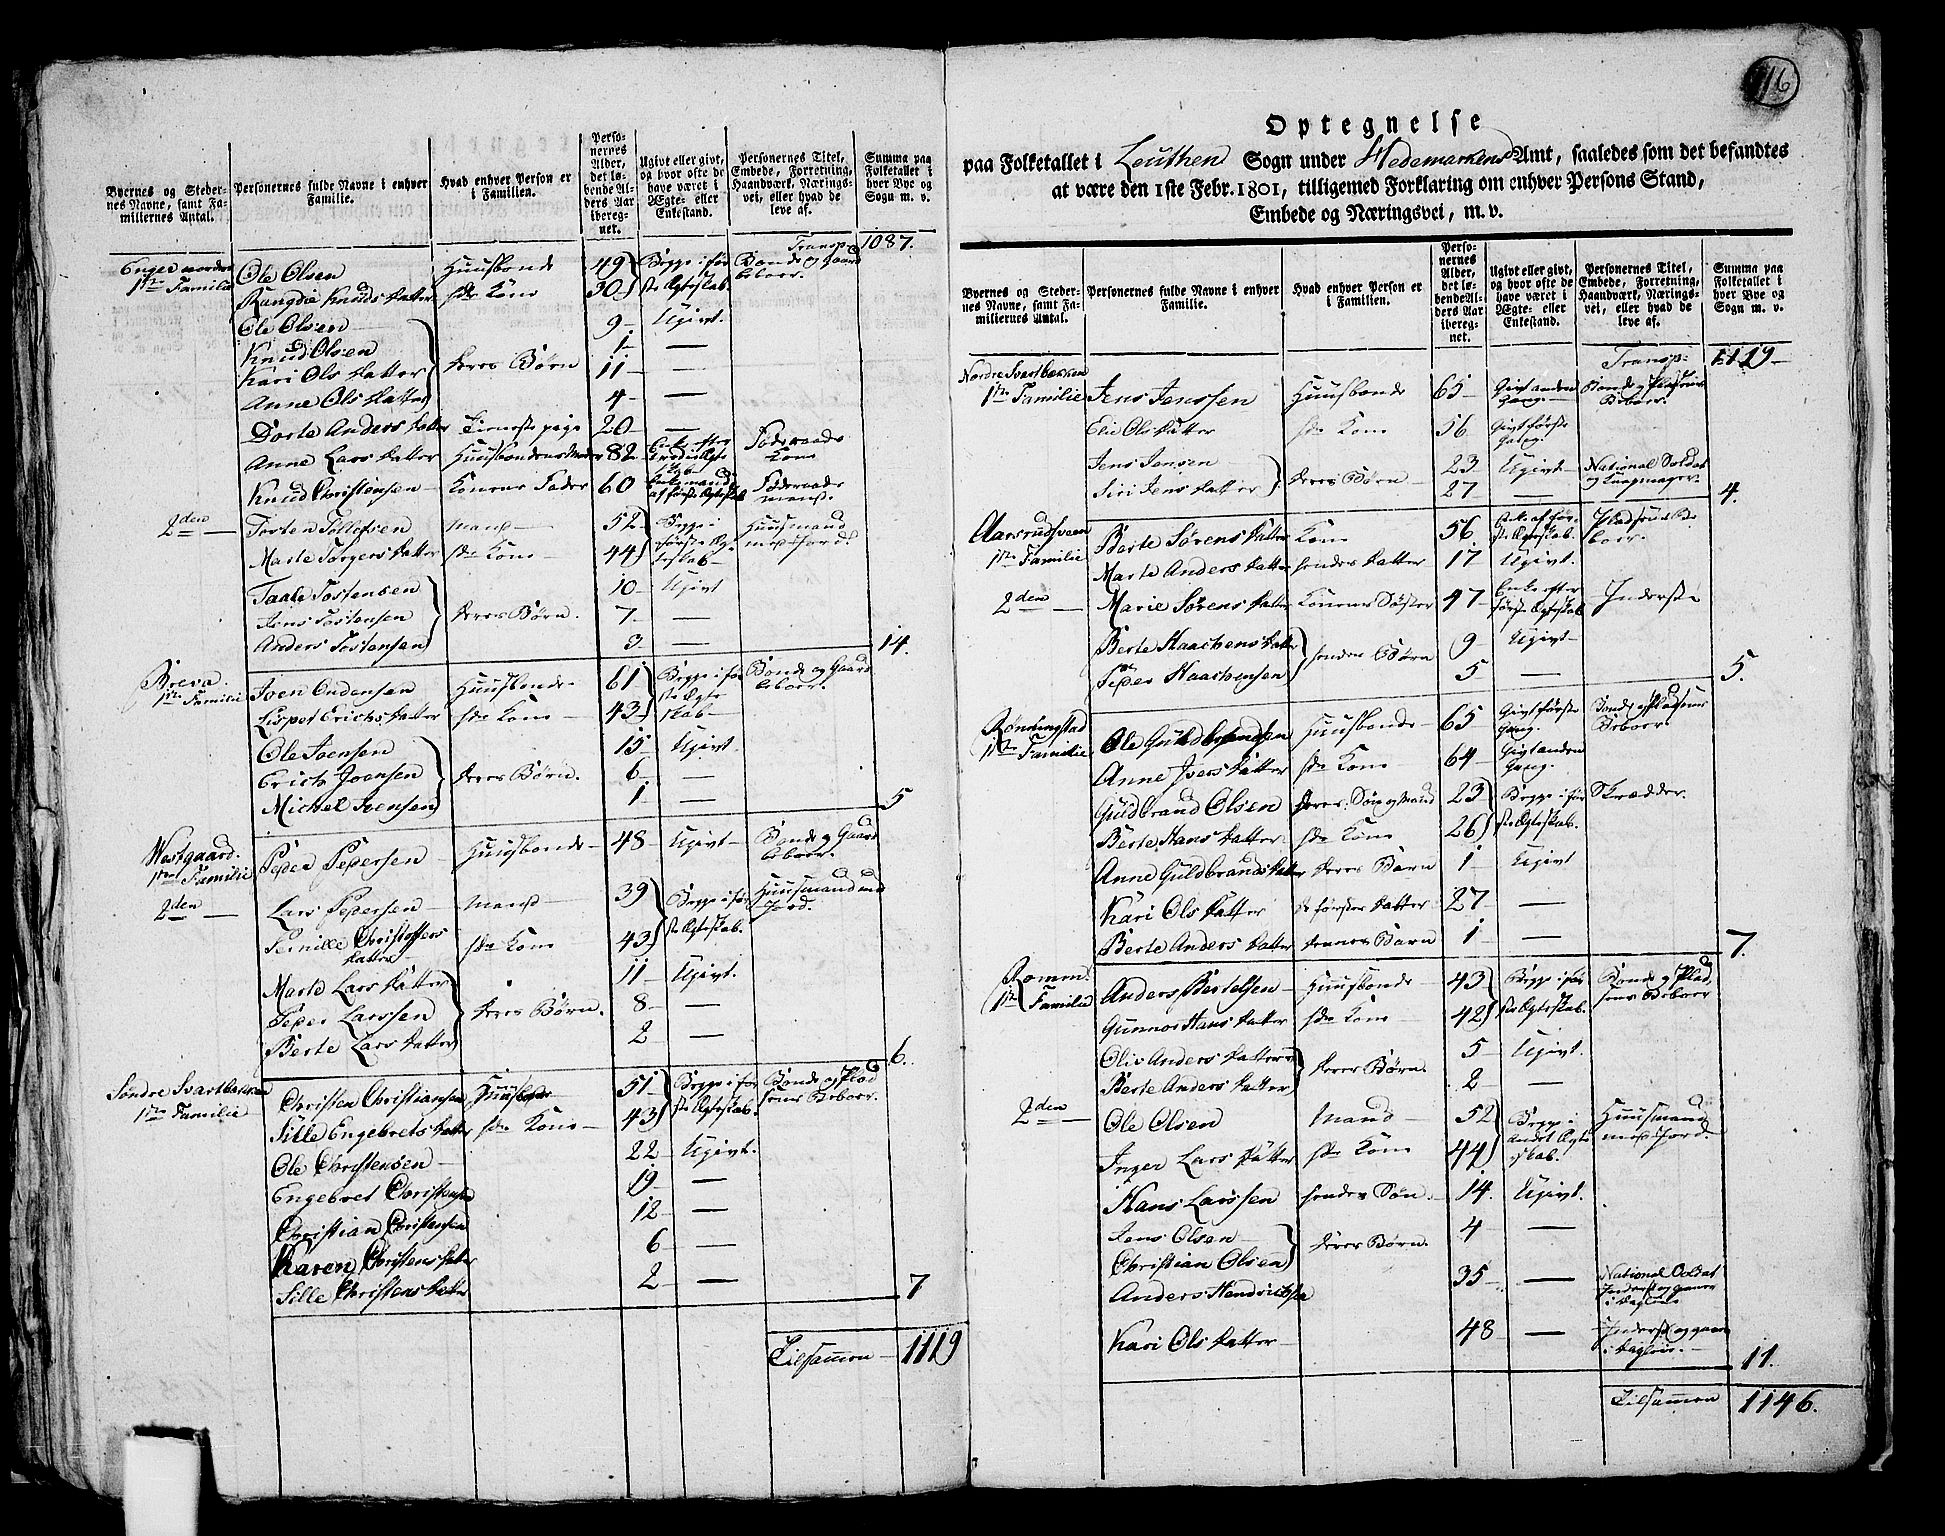 Byernes og Stedernes Navne, samt Familiernes Antal.
Personernes fulde Navne i enhver Familie.
Hvad enhver Person er i Familien.
Personernes Alder, det løbende Alders Aar iberegnet.
Ugivt eller givt, og hvor ofte de have været i Ægte- eller Enkestand.
Personernes Titel, Embede, Forretning, Haandværk, Næringsvei, eller hvad de leve af.
Summa paa Folketallet i hver Bye og Sogn m. v.
Transp. 1087.
Enger nordre
1ste Familie Ole Olsen Huusbonde 49 Begge i før Bonde og Gaard
Rangdie Knuds datter hs. Kone 30 ste Ægteskab beboer.
Ole Olsen 9 Ugivt.
Knud Olsen 1 —
Kari Ols datter deres Børn 11 —
Anne Ols datter 4 —
Dorte Anders datter Tieneste pige 20 —
Anne Lars datter Huusbondens Moder 82
Knud Christensen Konens Fader 60
2den Torsten Tollefsen Mand 52 Begge i Huusmand
Marte Torgers datter hs. Kone 44 første Ægteskab med Jord.
Taale Tostensen 10 Ugivt
Jens Tostensen deres Børn. 7 —
Anders Tostensen 3 —
14.
Breva.
1ste Familie Iven Endensen Huusbonde 61 Begge i før Bonde og Gaard
Lispet Erichs datter hs. Kone 43 ste Ægteskab beboer.
Ole Ivensen 15 Ugivt.
Erich Ivensen deres Børn. 6 —
Michel Ivensen 1 —
5
Westgaard.
1ste Familie Peder Pedersen Huusbonde 48 Ugivt Bonde og Gaard beboer.
2den Lars Pedersen Mand 39 Begge i før Huusmand med Jord.
Pernille Christoffers datter hs. Kone 43 ste Ægteskab.
Marte Lars datter 11 Ugivt.
Peder Larssen deres Børn. 8 —
Berte Lars datter 2 —
6.
Søndre Svartbækken
1ste Familie Christen Christiansen Huusbonde 51 Begge i før Bonde og Plad
Sille Engebrets datter hs. Kone 43 ste Ægteskab. sens Beboer.
Ole Christensen 22 Ugivt.
Engebret Christensen 19 —
Christian Christensen 12 —
Karen Christens datter 6 —
Sille Christens datter 2 —
7
Tilsammen 1119
116
Optegnelse
paa Folketallet i Leuthen Sogn under Hedemarkens Amt, saaledes som det befandtes
at være den 1ste Febr. 1801, tilligemed Forklaring om enhver Persons Stand,
Embede og Næringsvei, m. v.
Byernes og Stedernes Navne, samt Familiernes Antal.
Personernes fulde Navne i enhver Familie.
Hvad enhver Person er i Familien.
Personernes Alder, det løbende Alders Aar iberegnet.
Ugivt eller givt, og hvor ofte de have været i Ægte- eller Enkestand.
Personernes Titel, Embede, Forretning, Haandværk, Næringsvei, eller hvad de leve af.
Summa paa Folketallet i hver Bye og Sogn m. v.
Transp. 1119
Nordre Svartbækken
1ste Familie Jens Jenssen Huusbonde 65 Givt anden Gang. Bonde og Pladsens Beboer.
Elie Ols datter hs. Kone 56 Givt første Gang.
Jens Jensen 23 Ugivt National Soldat
Siri Jens datter deres Børn 27 —
4.
Aarsrudsveen
1ste Familie Berte Sørens datter Kone 56
Marte Anders datter hendes datter 17 Ugivt.
2den Marie Sørens datter Konens Søster 47 Enke efter første Ægteskab Inderste
Berte Haachens datter 9 Ugivt
Peder Haachensen hendes Børn 5 —
5.
Rønningstad
1ste Familie Ole Guldbrandsen Huusbonde 65 Givt første Gang. Bonde og Pladsens Beboer
Anne Ivers datter hs. Kone 64 Givt anden Gang.
Guldbrand Olsen deres Søn og Mand 23 Begge i før Skrædder.
Berte Hans datter hs. Kone 26 ste Ægteskab.
Anne Guldbrands datter deres Barn 1 Ugivt
Kari Ols datter de førstes datter 27 —
Berte Anders datter dennes Barn 1 —
7.
Rommen
1ste Familie Anders Bertelsen Huusbonde 43 Begge i før Bonde og Plad
Gunnor Hans datter hs. Kone 42 ste Ægteskab. sens Beboer
Oliv Anders datter 5 Ugivt.
Berte Anders datter deres Børn. 2 —
2den Ole Olsen Mand 52 Begge i Huusmand
Inger Lars datter hs. Kone 44 andet Ægteskab. med Jord.
Hans Larssen hendes Søn. 14. Ugivt.
Jens Olsen 4 —
Christian Olsen deres Børn.
Anders Hendrichsen 35 — National Soldat
Kari Ols datter 48 —
11.
Tilsammen 1146.